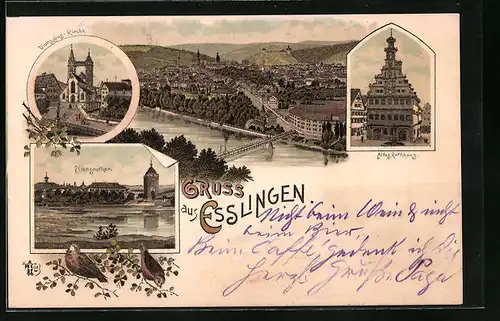 Dionysius-Kirche.
Altes Rathaus.
Pliensauthor.
GRUSS
aus ESSLINGEN.
Nicht beim Wein & nicht
beim Bier
Beim Caffe, gedenk ich dir
Herzl. Grüße Papa